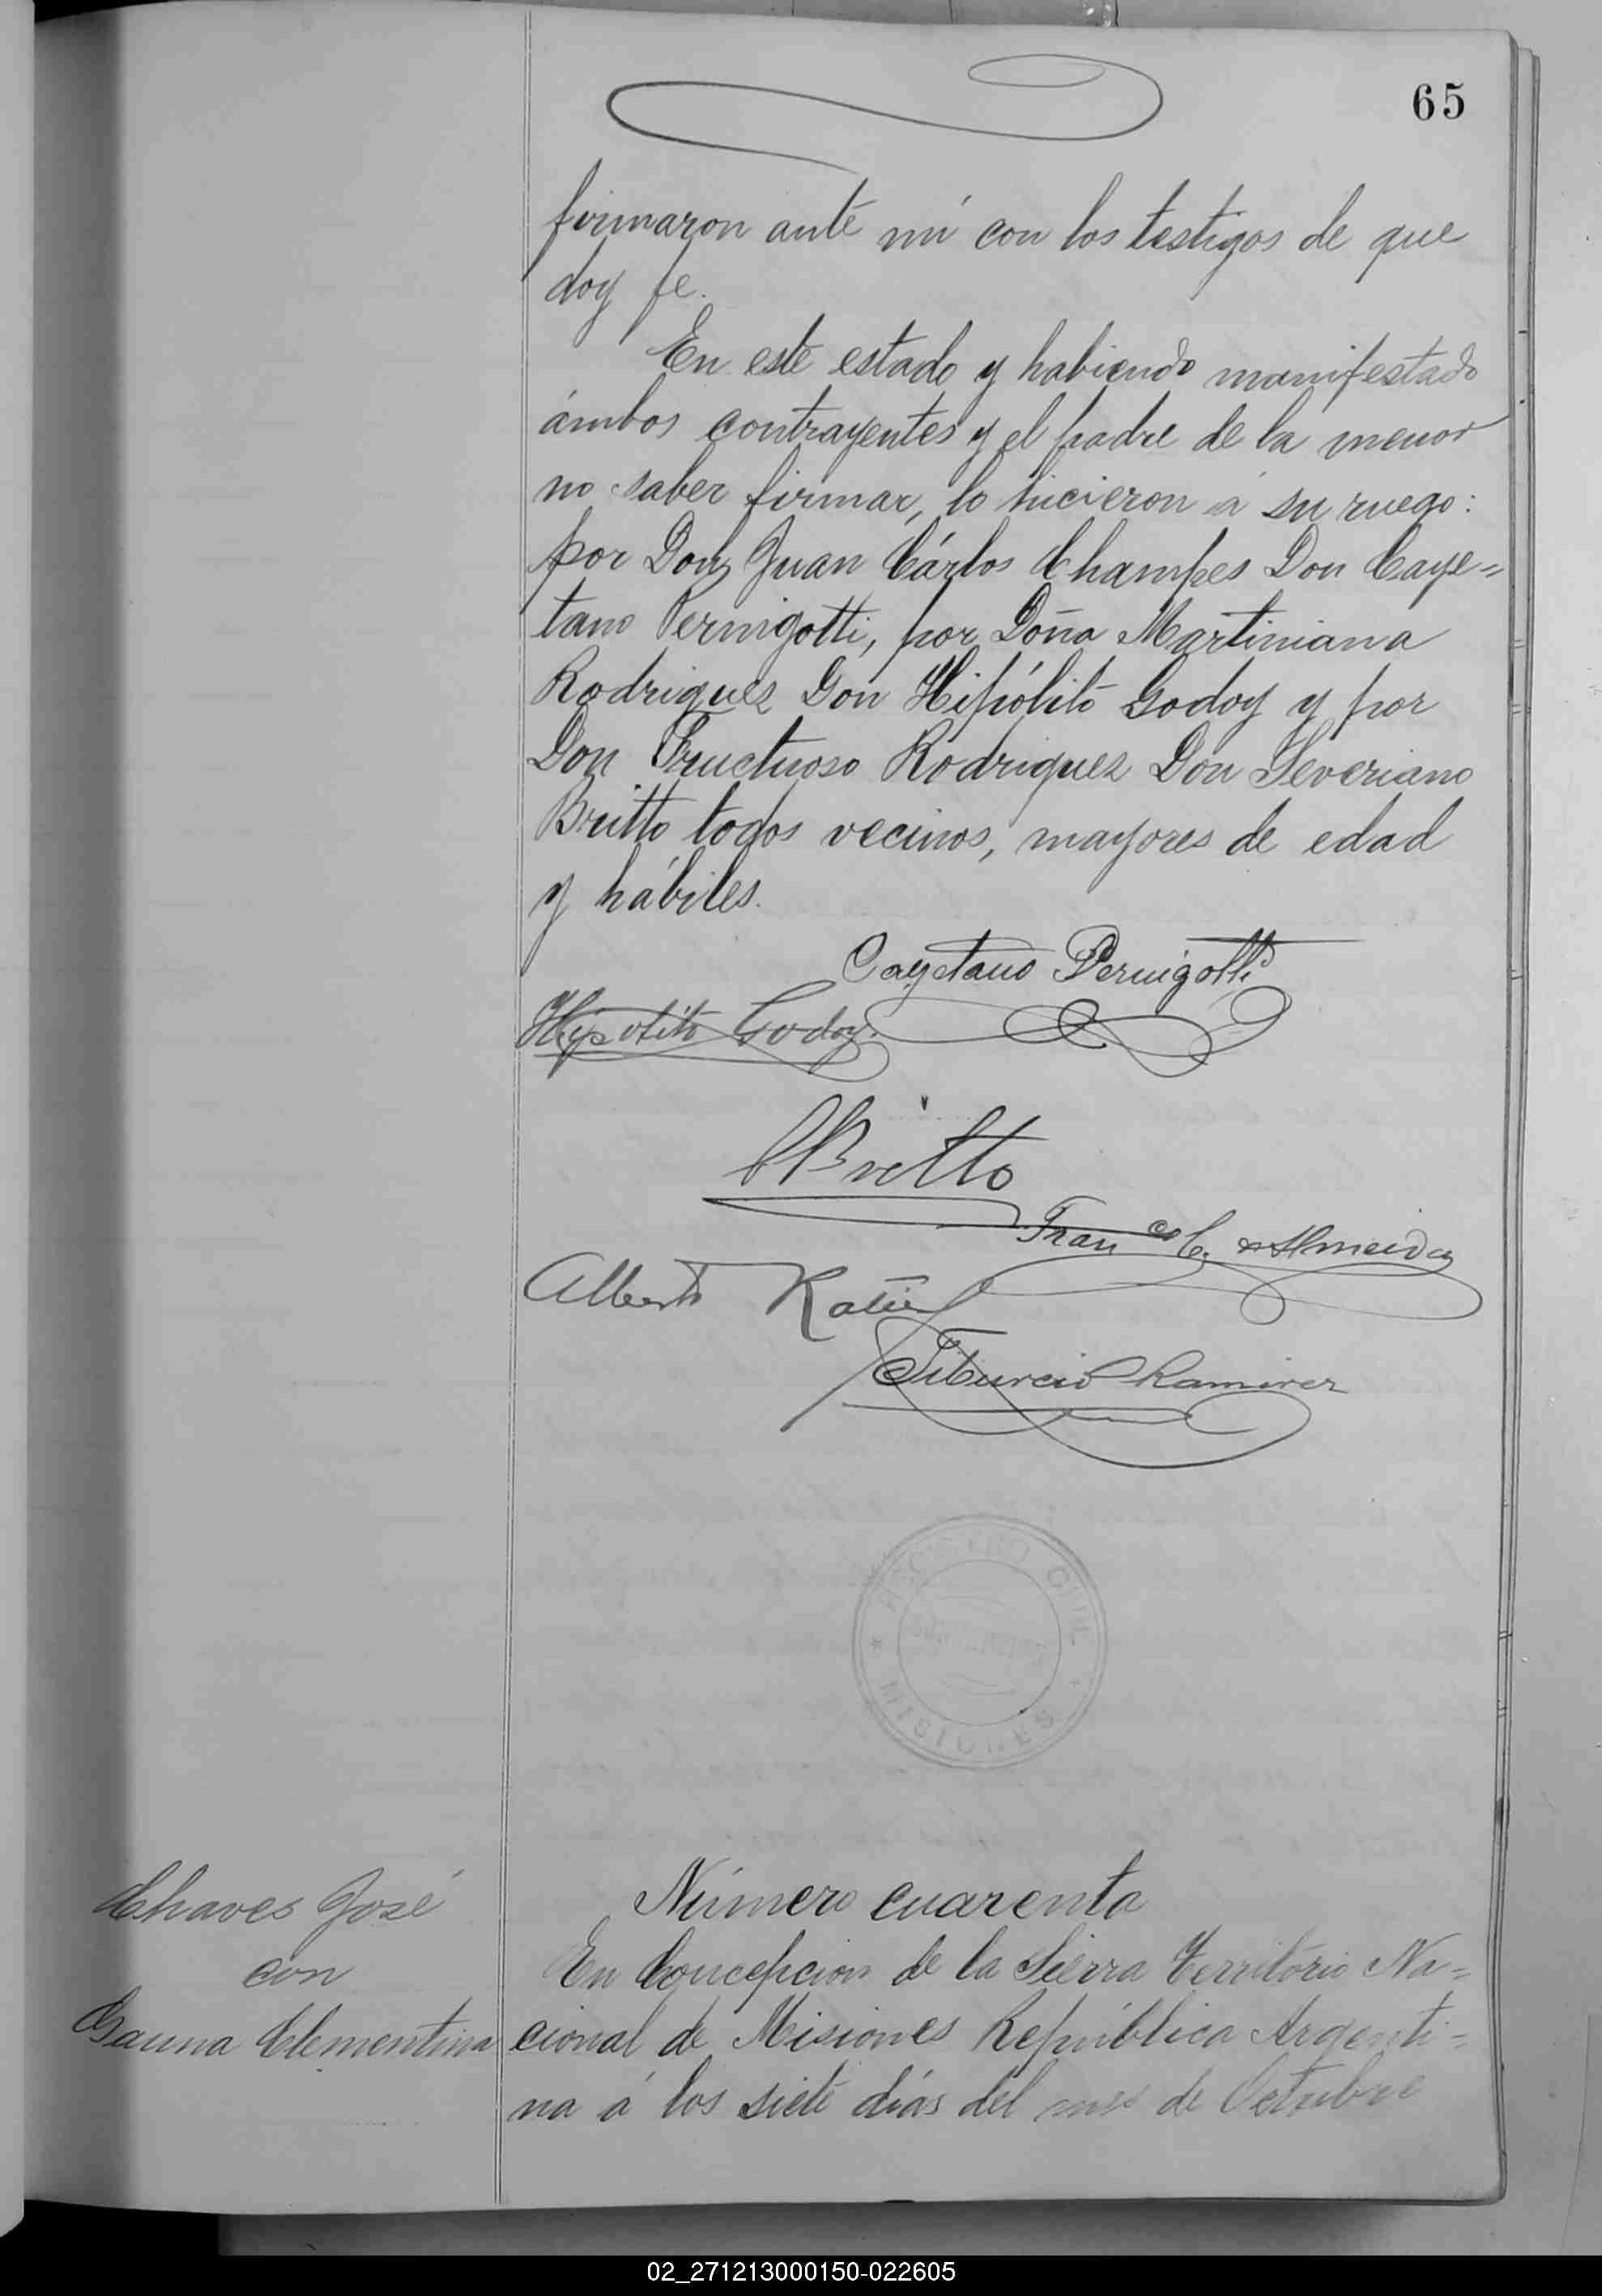 65
firmaron ante mí con los testigos de que
doy fe.
En este estado y habiendo manifestado
ámbos contrayentes y el padre de la menor
no saber firmar, lo hicieron á su ruego:
por Don Juan Cárlos Champes Don Caye=
tano Pernigotti, por Doña Martiniana
Rodriguez Don Hipólito Godoy y por
Don Fructuoso Rodriguez Don Severiano
Britto todos vecinos, mayores de edad
y hábiles.
Cayetano Pernigotti
Hipolito Godoy.
SBritto
Fran co C. de Almeida
Alberto
Tiburcio Ramirez
REGISTRO CIVIL
* MISIONES *
Número cuarenta
Chaves José
con
Gauna Clementina
En Concepcion de la Sierra Território Na=
cional de Misiones República Argenti=
na á los siete días del mes de Octubre
02_271213000150-022605